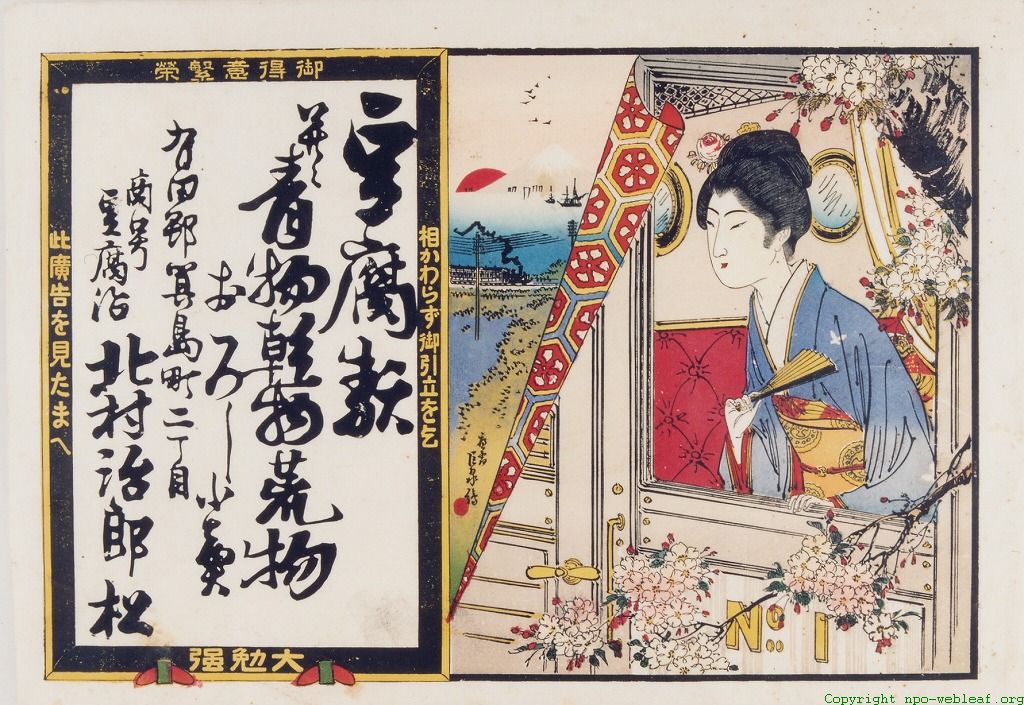 御得意繁榮
相かわらず御引立を乞
此廣告を見たまへ
大勉强
豆腐
青物乾物荒物
おろし小賣
有田郡箕島町二丁目
商号
豆腐治
北村治郎松
No. 1
Copyright npo-webleaf.org